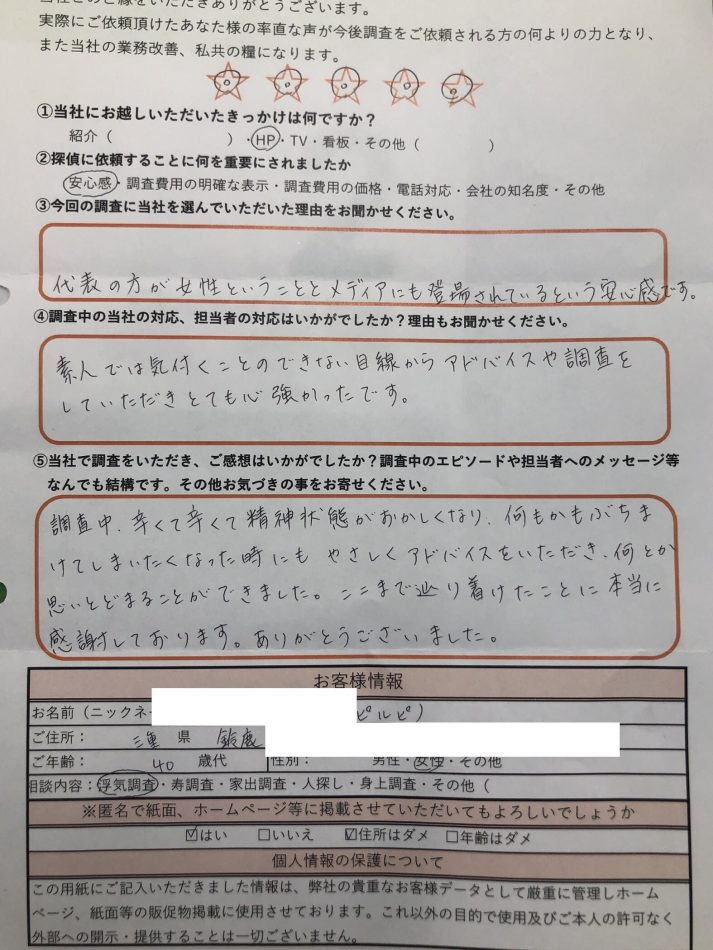 当社とのご縁をいただきありがとうございます。
実際にご依頼頂けたあなた様の率直な声が今後調査をご依頼される方の何よりの力となり、
また当社の業務改善、私共の糧になります。
①当社にお越しいただいたきっかけは何ですか?
紹介( )・HP・TV・看板・その他( )
②探偵に依頼することに何を重要にされましたか
安心感・調査費用の明確な表示・調査費用の価格・電話対応・会社の知名度・その他
③今回の調査に当社を選んでいただいた理由をお聞かせください。
代表の方が女性ということとメディアにも登場されているという安心感です。
④調査中の当社の対応、担当者の対応はいかがでしたか?理由もお聞かせください。
素人では気付くことのできない目線からアドバイスや調査を
していただきとても心強かったです。
⑤当社で調査をいただき、ご感想はいかがでしたか?調査中のエピソードや担当者へのメッセージ等
なんでも結構です。その他お気づきの事をお寄せください。
調査中、辛くて辛くて精神状態がおかしくなり、何もかもぶちま
けてしまいたくなった時にも やさしくアドバイスをいただき、何とか
思いとどまることができました。ここまで辿り着けたことに本当に
感謝しております。ありがとうございました。
お客様情報
お名前(ニックネー ピルピ)
ご住所: 三重 県 鈴鹿
ご年齢: 40 歳代 性別: 男性・女性・その他
相談内容:浮気調査・寿調査・家出調査・人探し・身上調査・その他(
※匿名で紙面、ホームページ等に掲載させていただいてもよろしいでしょうか
☑はい ☐いいえ ☑住所はダメ ☐年齢はダメ
個人情報の保護について
この用紙にご記入いただきました情報は、弊社の貴重なお客様データとして厳重に管理しホーム
ページ、紙面等の販促物掲載に使用させております。これ以外の目的で使用及びご本人の許可なく
外部への開示・提供することは一切ございません。